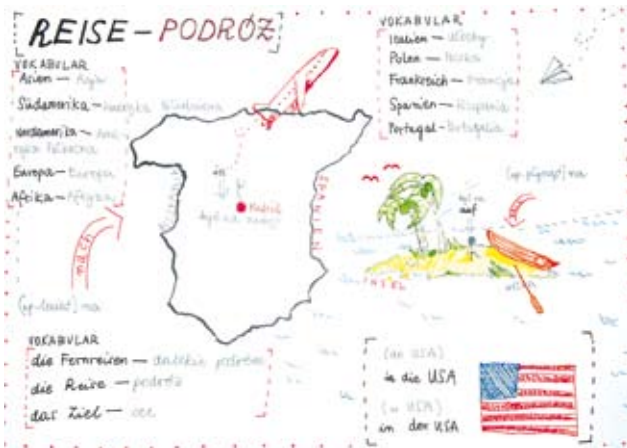 REISE - PODRÓŻ
VOKABULAR
Asien — Azja
Südamerika — Ameryka Południowa
Nordamerika — Ame-
ryka Północna
Europa — Europa
Afrika — Afryka
nach
(np. lecieć) na
in
Madrid
SPANIEN
VOKABULAR
Italien — Włochy
Polen — Polska
Frankreich — Francja
Spanien — Hiszpania
Portugal — Portugalia
(np. płynąć) na
auf
INSEL
VOKABULAR
die Fernreisen — dalekie podróże
die Reise — podróż
das Ziel — cel
(do USA)
in die USA
(w USA)
in den USA